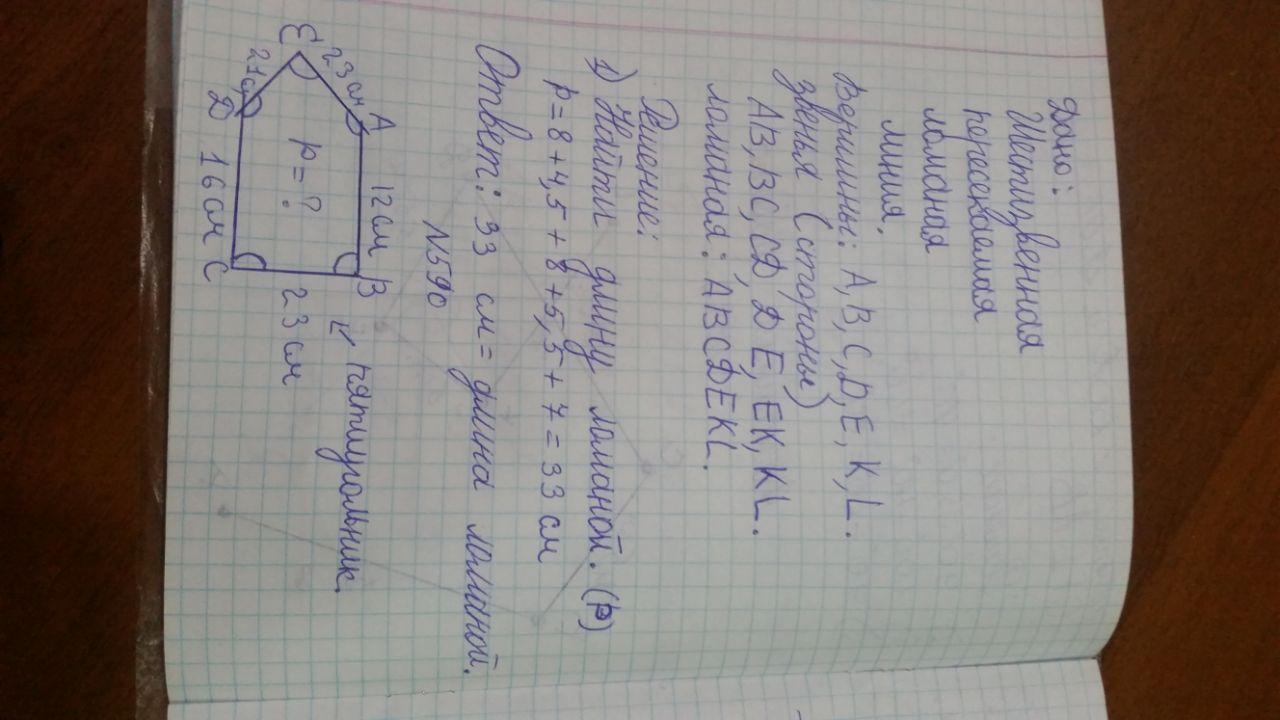 Дано:
Шестизвенная
пересекаемая
ломаная
линия.
Вершины: A, B, C, D, E, K, L.
звенья (стороны)
AB, BC, CD, DE, EK, KL.
ломаная: ABCDEKL.
Решение:
1) Найти длину ломаной. (р)
р = 8 + 4,5 + 8 + 5,5 + 7 = 33 см
Ответ: 33 см = длина ломаной.
№590
A 12 см B
E 23 см
23 см
p = ?
D 16 см C
пятиугольник.